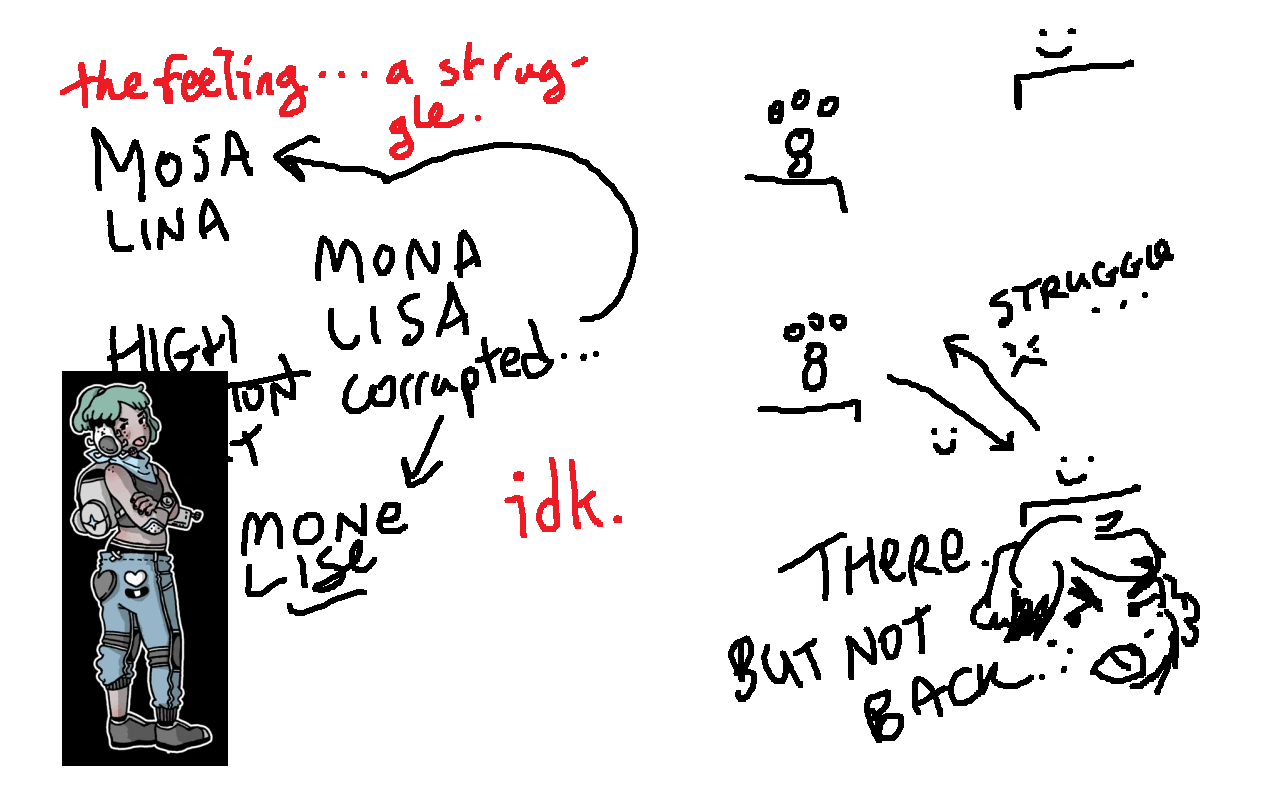 the feeling... a strug-
gle.
MOSA
LINA
MONA
LISA
corrupted...
HIGH
MONE
LISE
idk.
STRUGGLE
...
THERE
BUT NOT
BACK...